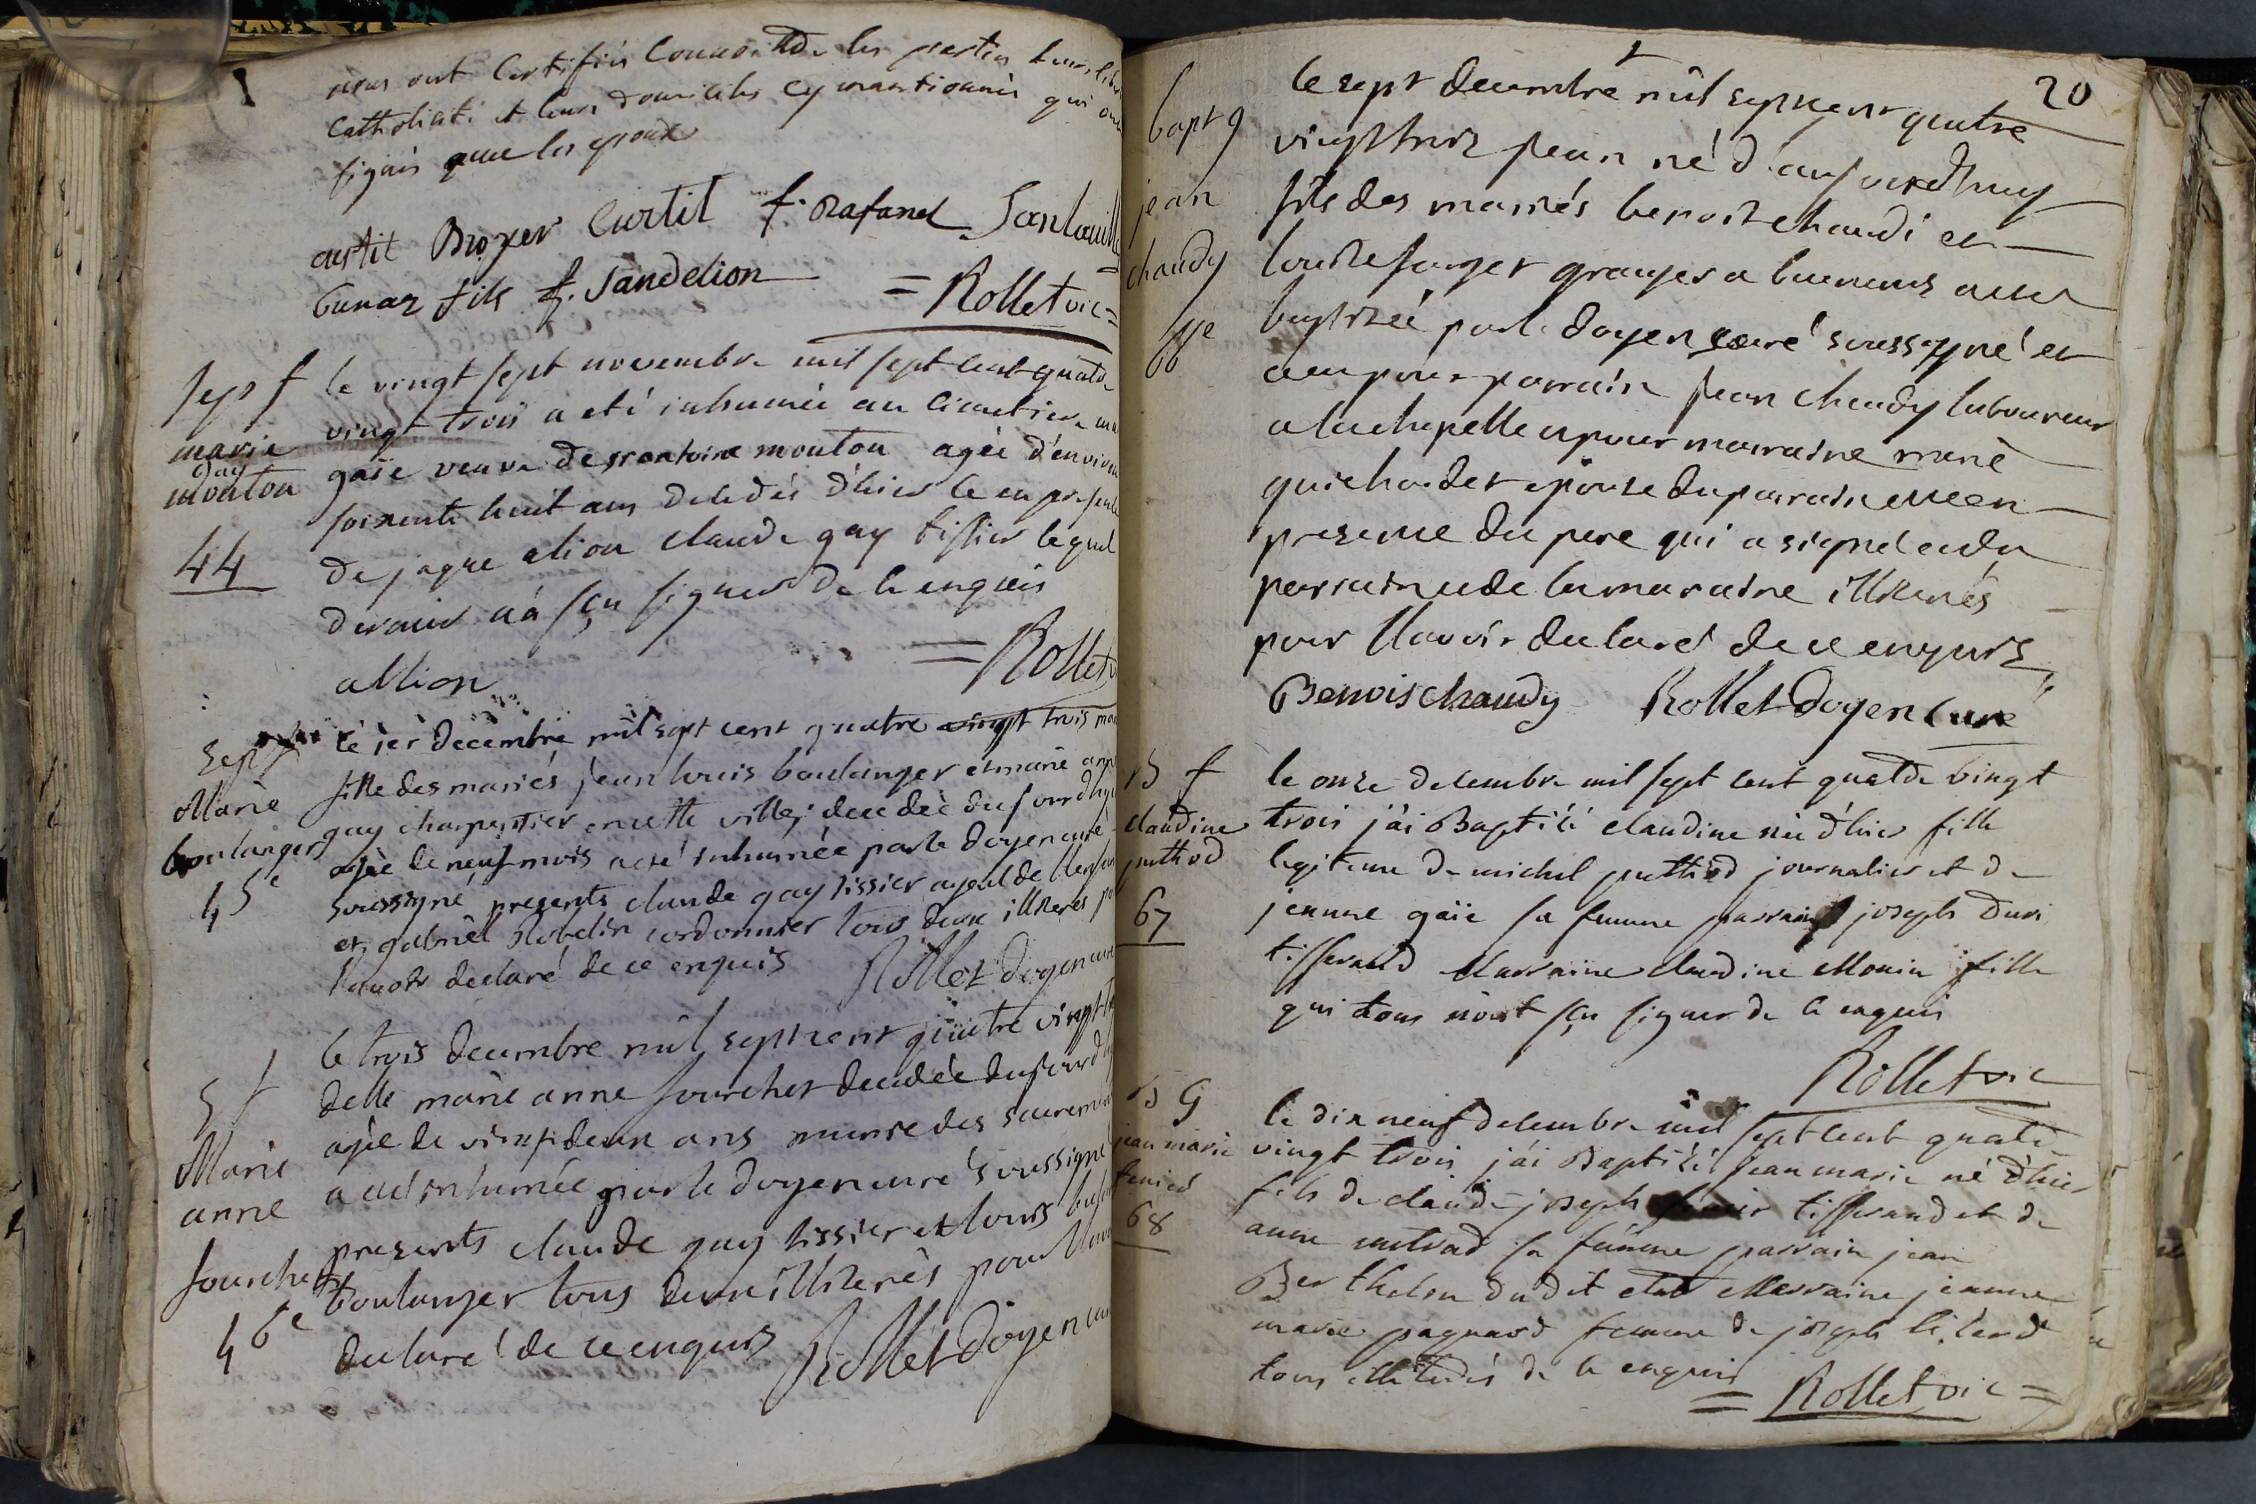 nous ont certifiés connoitre les parties leur
catholicité et leurs domiciles cy mantionnés qui ont
signés avec les epoux
curtil Broyer Curtil f. Rafanel
bunaz fils f. Jandelion = Rollet vic =
sep f
marie
gay
mouton
44
le vingt sept novembre mil sept cent quatre
vingt trois a eté inhumée au cimetiere
gaïe veuve de mouton agée d'environ
soixente huit ans dcedée d'hier le en presence
de jaque alion claude gay tissier lequel
dernier n'a sçu signer de ce enquis
allion = Rollet
Sep f
Marie
boulanger
45e
le 1er decembre mil sept cent quatre vingt trois
fille des mariés jean louis boulanger et marie anne
gay charpentier en cette ville, decedée du jourdhuy
agée de neuf mois a eté inhumée par le doyen curé
soussigné presents claude gay tissier ayeul de
et gabriel Robelin cordonnier tous deux illiterés
l'avoir declaré de ce enquis Rollet doyen curé
S f
Marie
anne
fourchet
46e
le trois decembre mil sept cent quatre vingt
delle marie anne fourchet decedée du jourd
agée de vingt deux ans munie des sacrements
a eté inhumée par le doyen curé soussigné
presents claude gay tissier et louis
boulanger tous deux illiterés pour
declaré de ce enquis Rollet doyen curé
20
bapt g
jean
chaudy
66e
le sept decembre mil sept cent quatre
vingt trois jean né d'aujourdhuy
fils des mariés benoit chaudi et
louise granger a eté
baptisé par le doyen curé soussigné et
a eu pour parrain jean chaudy laboureur
a la chapelle et pour marraine marie
guichardet epouse du parrain et en
presence du pere qui a signé et du
parrain et de la maraine illiterés
pour l'avoir declaré de ce enquis
Benois chaudy Rollet doyen curé
B f
claudine
puthod
67
le onze decembre mil sept cent quatre vingt
trois j'ai Baptisé claudine née d'hier fille
legitime de michel putthod journalier et de
jeanne gaïe sa femme parrain joseph
tisserand Marraine claudine Monin fille
qui tous n'ont sçu signer de ce enquis
Rollet vic
B G
jean marie
68
le dix neuf decembre mil sept cent quatre
vingt trois j'ai Baptisé jean marie né d'hier
fils de claude joseph tisserand et de
anne mutrad sa femme parrain jean
Berthelon dudit etat Marraine jeanne
marie pagnard femme de joseph
tous illiterés de ce enquis
= Rollet vic =